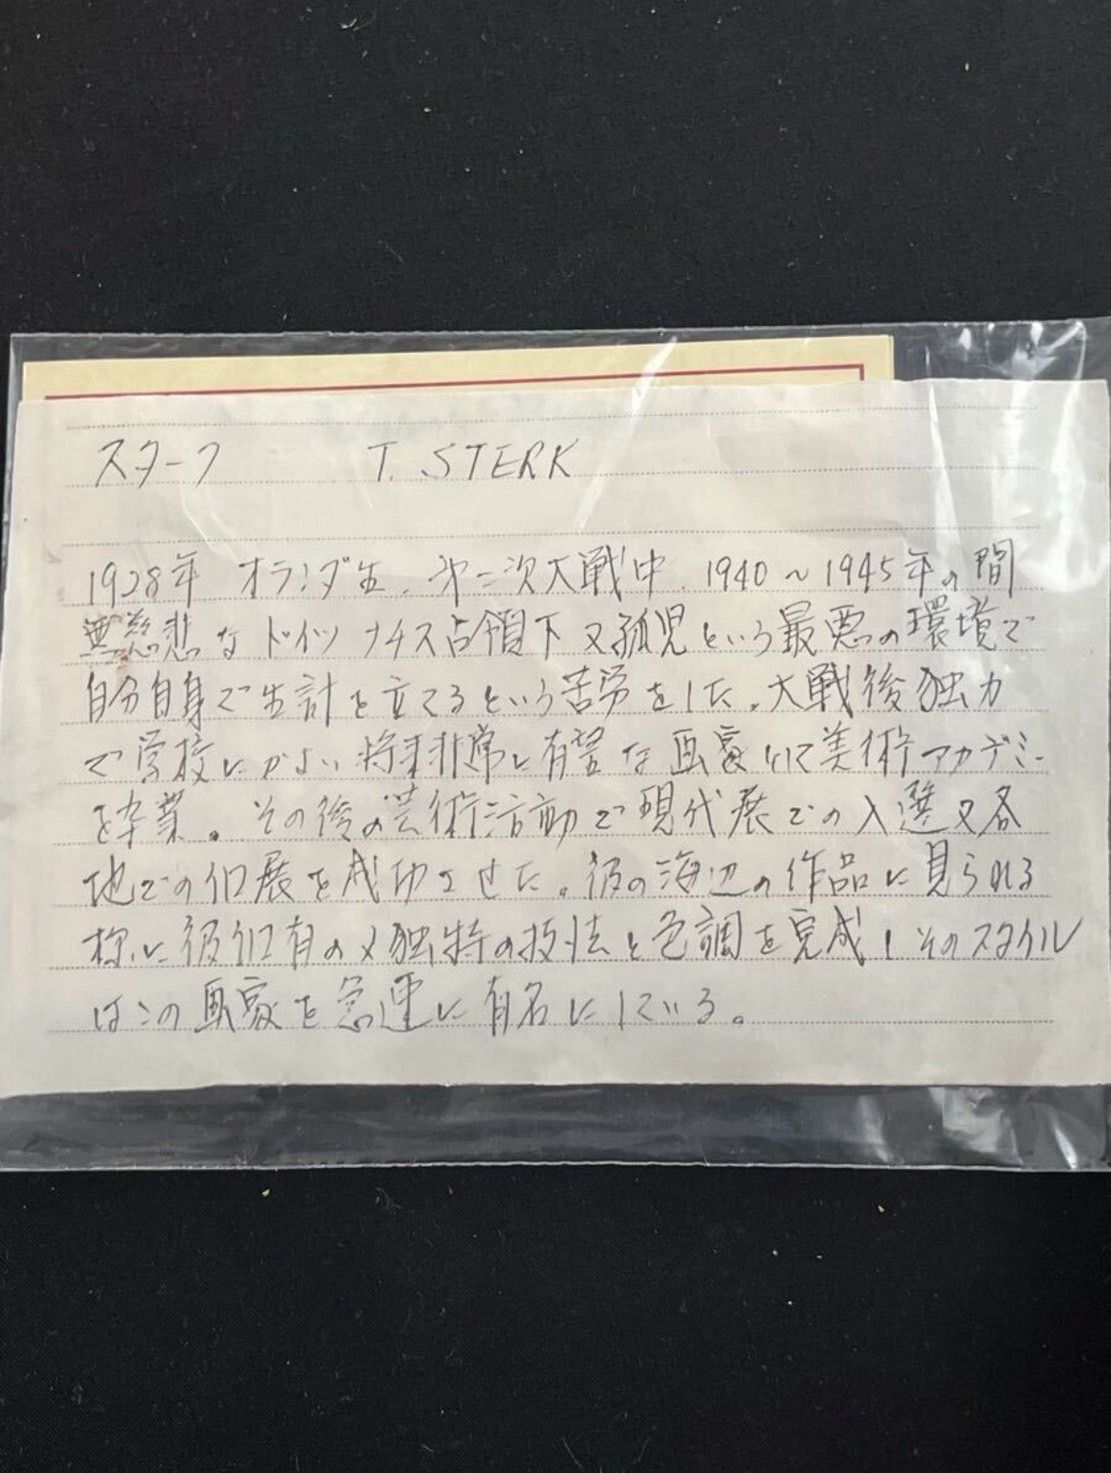 スターク T. STERK
1928年 オランダ生. 第二次大戦中. 1940〜1945年の間
無慈悲な ドイツ ナチス占領下 又孤児という最悪の環境で
自分自身で生計を立てるという苦労をした。大戦後独力
で学校にかよい将来非常に有望な画家として美術アカデミー
を卒業。その後の芸術活動で現代展での入選又各
地での個展を成功させた。彼の海辺の作品に見られる
様に彼個有の又独特の技法と色調を完成しそのスタイル
はこの画家を急速に有名にしている。